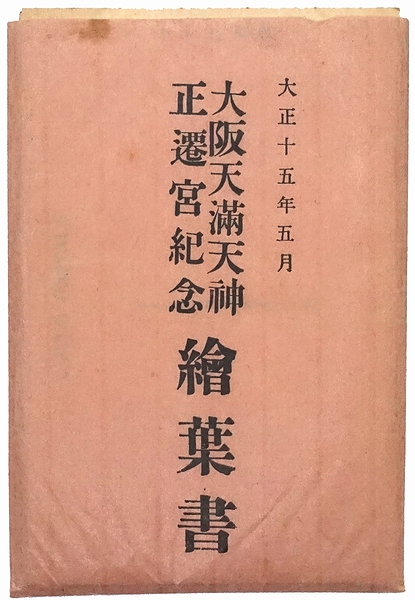 大正十五年五月
大阪天滿天神
正遷宮紀念
繪葉書